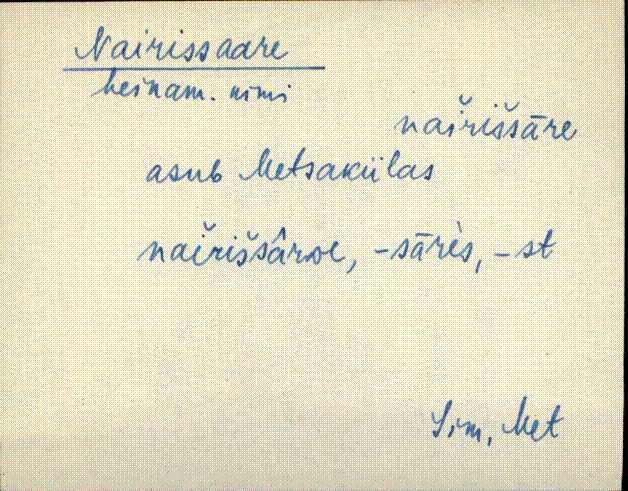 Nairissaare
heinam. nimi
naĭrišsāre
asub Metsakülas
-sārès, -st
Sim, Met